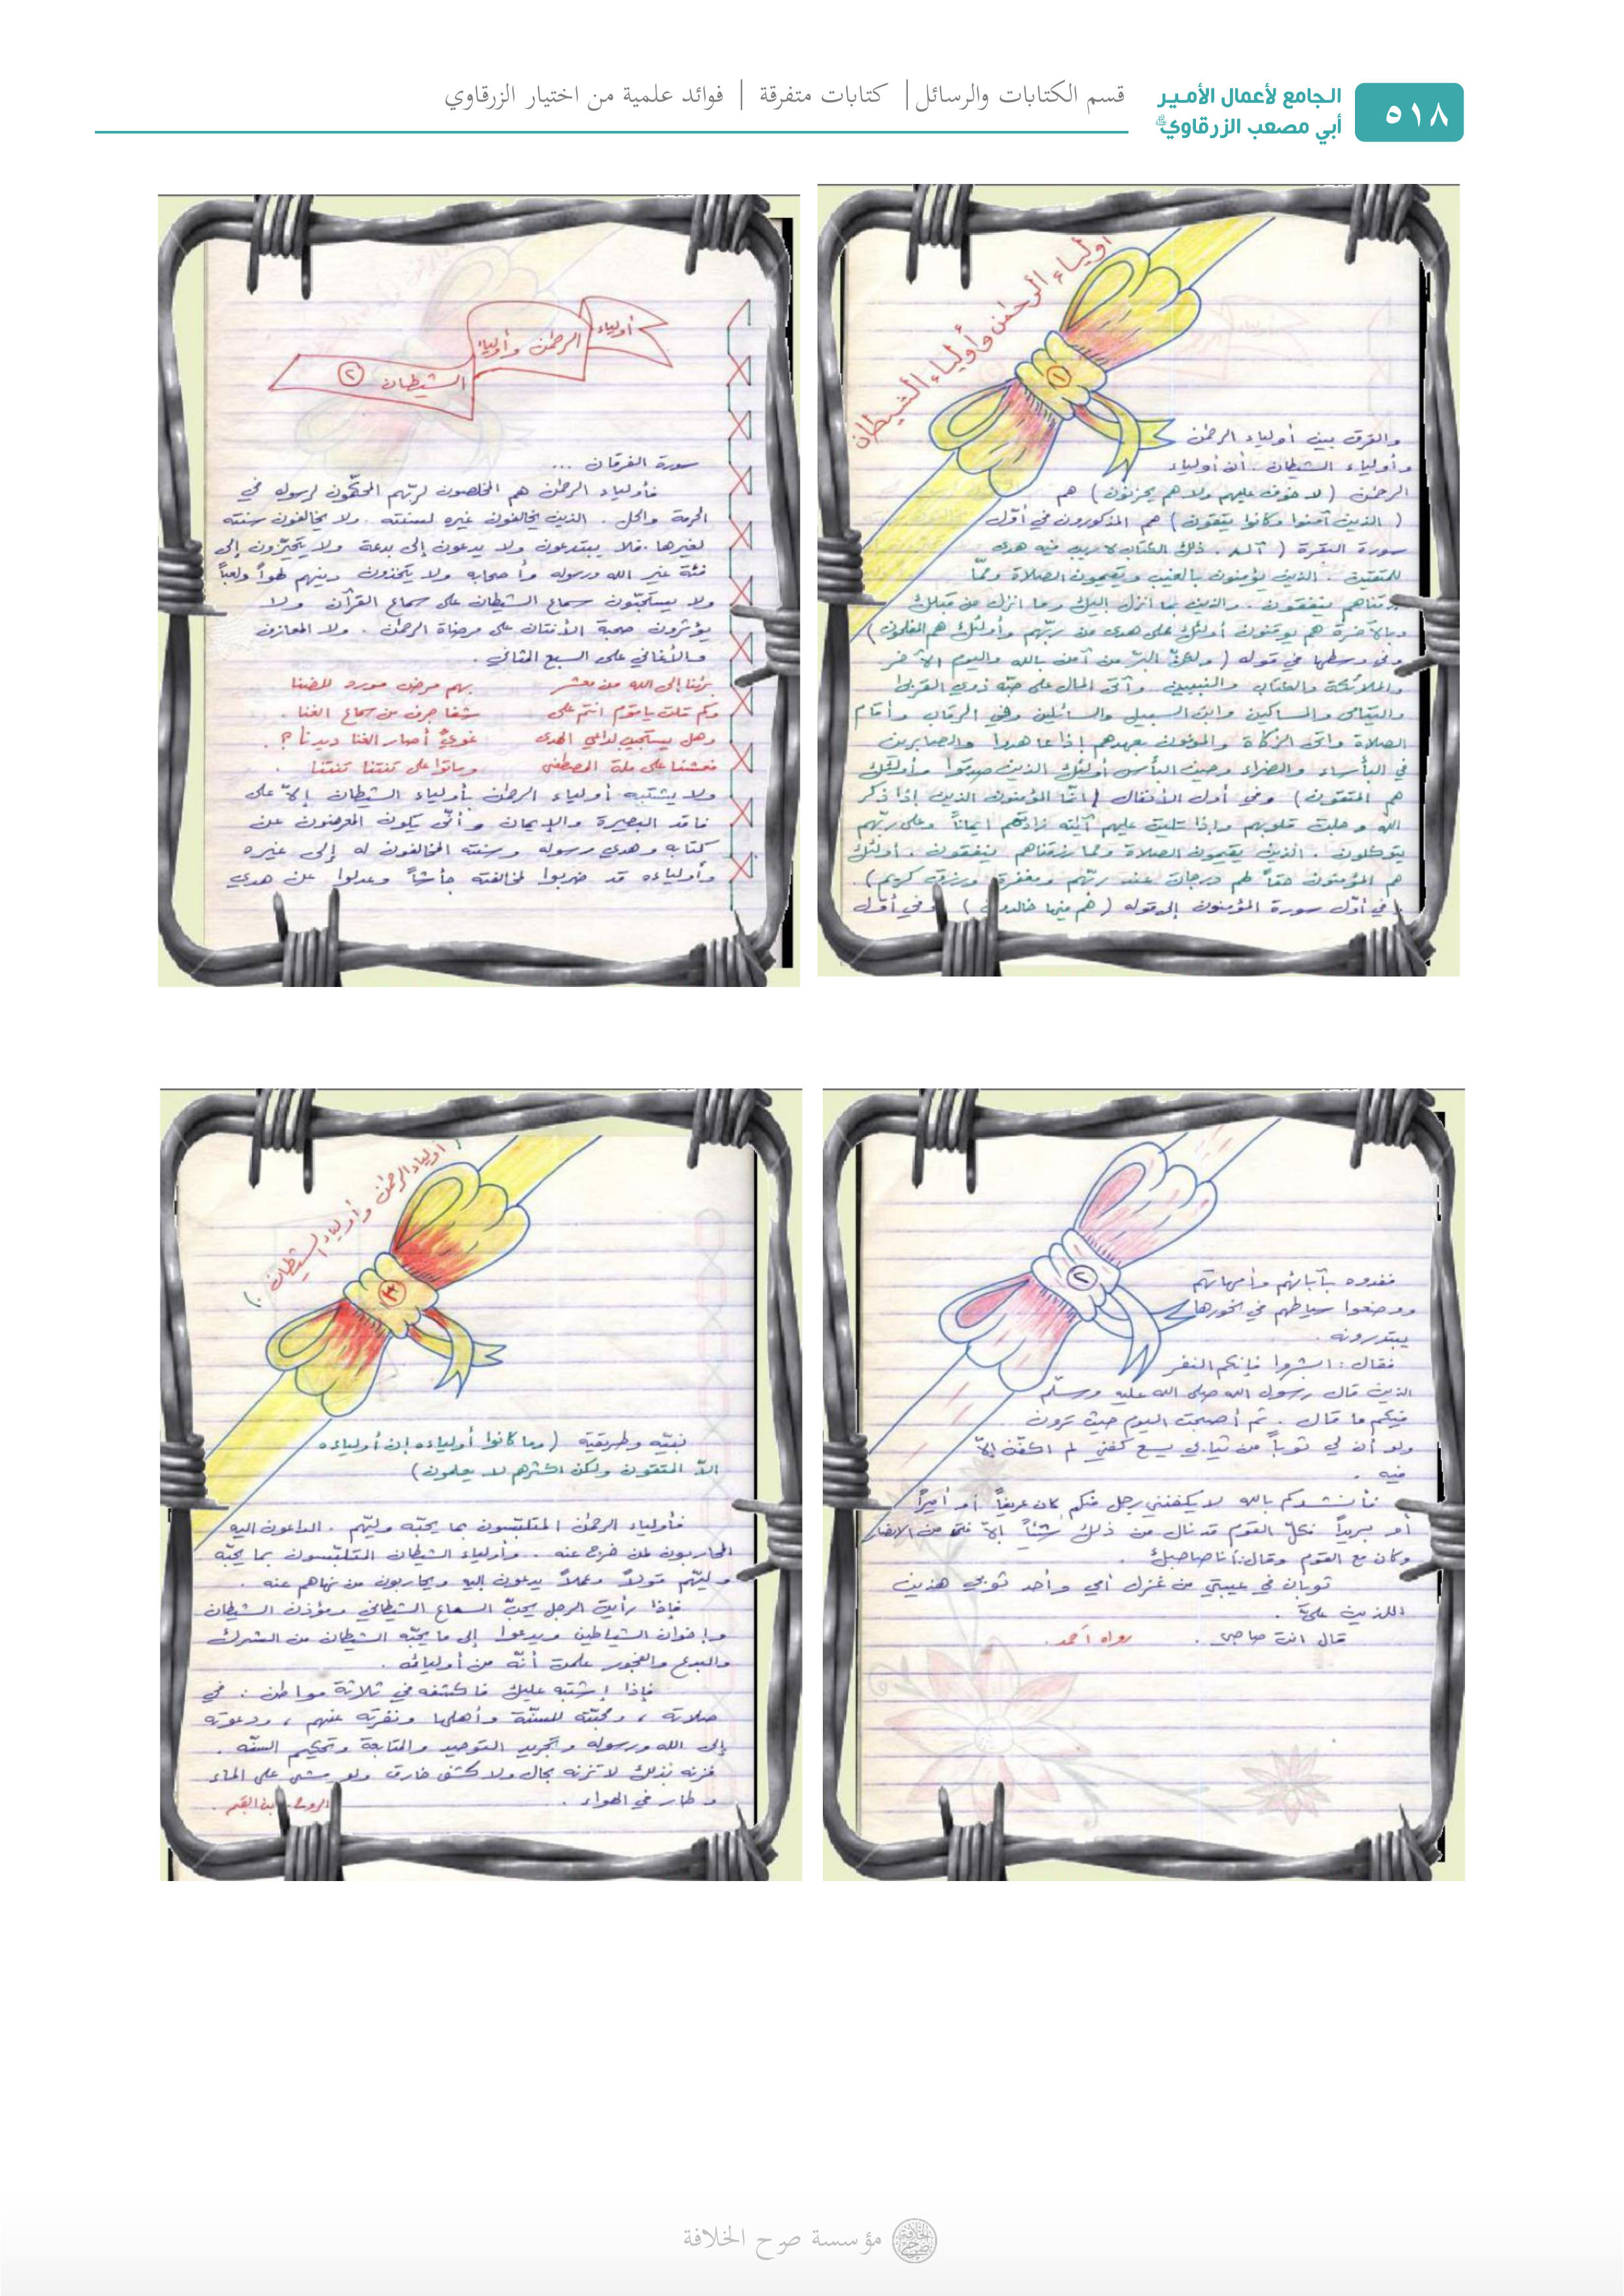 ٥١٨
الجامع لأعمال الأمير
أبي مصعب الزرقاوي
قسم الكتابات والرسائل | كتابات متفرقة | فوائد علمية من اختيار الزرقاوي
أولياء الرحمن وأولياء الشيطان
١
والفرق بين أولياء الرحمن
وأولياء الشيطان . أن أولياء
الرحمن ( لا خوف عليهم ولا هم يحزنون ) هم
( الذين آمنوا وكانوا يتقون ) هم المذكورون في أوّل
سورة البقرة ( آلم . ذلك الكتاب لا ريب فيه هدى
للمتقين . الذين يؤمنون بالغيب ويقيمون الصلاة وممّا
رزقناهم ينفقون . والذين بما أنزل إليك وما أنزل من قبلك
وبالآخرة هم يوقنون أولئك على هدى من ربّهم وأولئك هم المفلحون )
وفي وسطها في قوله ( ولكنّ البرّ من آمن بالله واليوم الآخر
والملائكة والكتاب والنبيين وآتى المال على حبّه ذوي القربى
واليتامى والمساكين وابن السبيل والسائلين وفي الرقاب وأقام
الصلاة وآتى الزكاة والموفون بعهدهم إذا عاهدوا والصابرين
في البأساء والضراء وحين البأس أولئك الذين صدقوا وأولئك
هم المتقون ) وفي أول الأنفال ( إنّما المؤمنون الذين إذا ذكر
الله وجلت قلوبهم وإذا تليت عليهم آيته زادتهم إيماناً وعلى ربّهم
يتوكلون . الذين يقيمون الصلاة ومما رزقناهم ينفقون . أولئك
هم المؤمنون حقاً لهم درجات عند ربّهم ومغفرة ورزق كريم ) .
وفي أوّل سورة المؤمنون إلى قوله ( هم فيها خالدون ) وفي أوّل
أولياء الرحمن وأولياء
الشيطان ٢
سورة الفرقان ...
فأولياء الرحمن هم المخلصون لربّهم المحكّمون لرسوله في
الحرمة والحل . الذين يخالفون غيره لسنته . ولا يخالفون سنته
لغيرها . فلا يبتدعون ولا يدعون إلى بدعة ولا يتحيّزون إلى
فئة غير الله ورسوله وأصحابه ولا يتخذون دينهم لهواً ولعباً
ولا يستحبّون سماع الشيطان على سماع القرآن ولا
يؤثرون صحبة الأنتان على مرضاة الرحمن . ولا المعازف
والأغاني على السبع المثاني .
برئنا إلى الله من معشر بهم مرض مورد للضنا
وكم قلت يا قوم أنتم على شفا جرف من سماع الغنا .
وهل يستجيب لداعي الهدى غويّ أصار الغنا ديدنا ؟ .
فعشنا على ملة المصطفى وماتوا على تنتنا تنتنا .
ولا يشتبه أولياء الرحمن بأولياء الشيطان إلاّ على
فاقد البصيرة والإيمان وأنّى يكون المعرضون عن
كتابه وهدي رسوله وسنته المخالفون له إلى غيره
وأولياءه قد ضربوا لمخالفته جأشاً وعدلوا عن هدي
٢
ففدوه بآبائهم وأمهاتهم
ووضعوا سياطهم في نحورها
يبتدرونه .
فقال : أبشروا فإنكم النفر
الذين قال رسول الله صلى الله عليه وسلّم
فيكم ما قال . ثم أصبحت اليوم حيث ترون
ولو أن لي ثوباً من ثيابي يسع كفني لم أكفّن إلاّ
فيه .
فأنشدكم بالله لا يكفنني رجل منكم كان عريفاً أو أميراً
أو بريداً فكلّ القوم قد نال من ذلك شيئاً إلاّ فتى من الأنصار
وكان مع القوم وقال : أنا صاحبك .
ثوبان في عيبتي من غزل أمي وأحد ثوبي هذين
اللذين عليّ .
قال أنت صاحبي . رواه أحمد .
( أولياء الرحمن وأولياء الشيطان . )
٣
نبيّه وطريقته ( وما كانوا أولياءه إن أولياءه
إلاّ المتقون ولكن أكثرهم لا يعلمون )
فأولياء الرحمن المتلبّسون بما يحبّه وليّهم . الداعون إليه
المحاربون لمن خرج عنه . وأولياء الشيطان المتلبّسون بما يحبّه
وليّهم قولاً وعملاً يدعون إليه ويحاربون من نهاهم عنه .
فإذا رأيت الرجل يحبّ السماع الشيطاني ومؤذن الشيطان
وإخوان الشياطين ويدعوا إلى ما يحبّه الشيطان من الشرك
والبدع والفجور علمت أنّه من أوليائه .
فإذا إشتبه عليك فاكشفه في ثلاثة مواطن : في
صلاته ، ومحبّته للسنّة وأهلها ونفرته عنهم ، ودعوته
إلى الله ورسوله وتجريد التوحيد والمتابعة وتحكيم السنّه .
فزنه بذلك لا تزنه بحال ولا كشف خارق ولو مشى على الماء
وطار في الهواء . الروح . ابن القيم .
مؤسسة صرح الخلافة